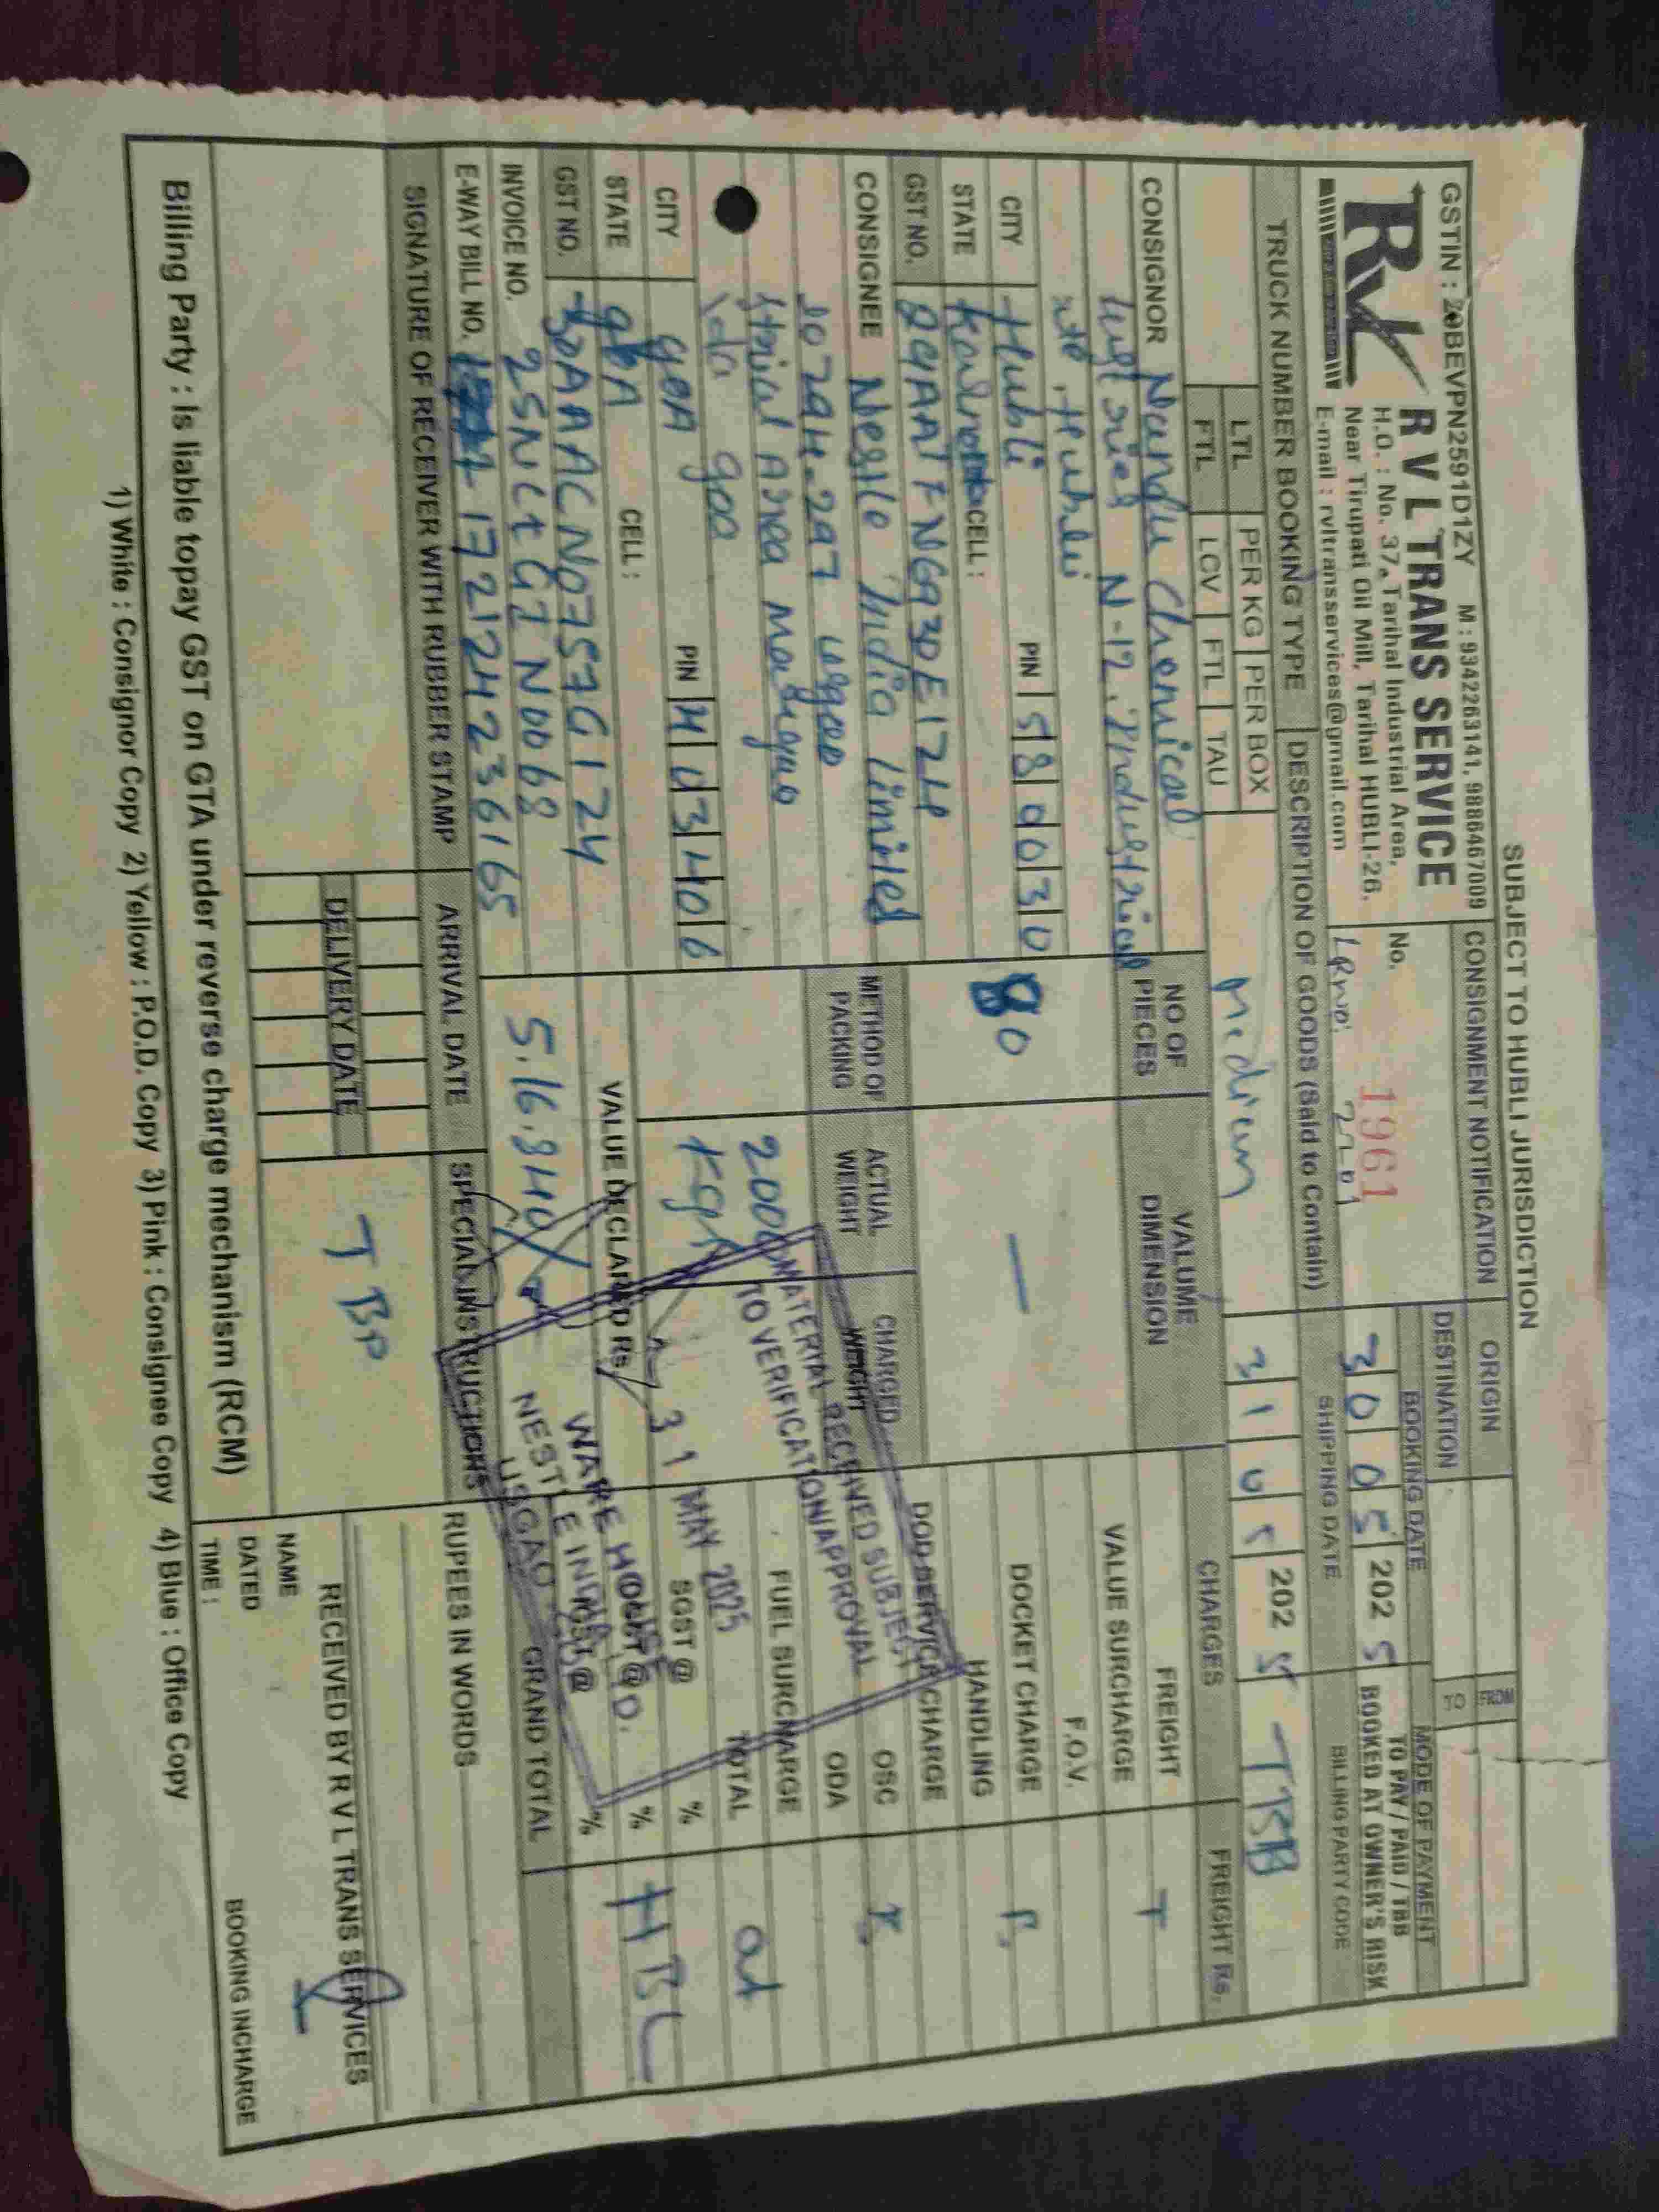 SUBJECT TO HUBLI JURISDICTION
GSTIN : 20BEVPN2591D1ZY M : 9342263141, 9886467009
RVL
R V L TRANS SERVICE
H.O. : No. 37, Tarihal Industrial Area,
Near Tirupati Oil Mill, Tarihal HUBLI-26.
E-mail : rvltransservices@gmail.com
CONSIGNMENT NOTIFICATION
No. 1961
LRno:
ORIGIN FROM
DESTINATION TO
BOOKING DATE
30 05 2025
SHIPPING DATE
31 05 2025
MODE OF PAYMENT
TO PAY / PAID / TBB
BOOKED AT OWNER'S RISK
BILLING PARTY CODE
TBB
TRUCK NUMBER BOOKING TYPE
LTL PER KG PER BOX
FTL LCV FTL TAU
DESCRIPTION OF GOODS (Said to Contain)
Medium
CONSIGNOR Nandu Chemical
N-12, Industrial
Hubli
CITY Hubli PIN 580030
STATE CELL :
GST NO.
CONSIGNEE Nestle India Limited
294-297 usgao
Area
goa
CITY goA PIN 403406
STATE goA CELL :
GST NO. 30AAACN0757G1Z4
INVOICE NO. 25NCtG7N0068
E-WAY BILL NO. 172124236165
SIGNATURE OF RECEIVER WITH RUBBER STAMP
NO OF PIECES
80
VALUME DIMENSION
—
METHOD OF PACKING
ACTUAL WEIGHT
2000 Kgs
CHARGED WEIGHT
VALUE DECLARED Rs
5,16,840/-
ARRIVAL DATE
DELIVERY DATE
SPECIAL INSTRUCTIONS
TBP
CHARGES FREIGHT Rs.
FREIGHT T
VALUE SURCHARGE
F.O.V.
DOCKET CHARGE
HANDLING
DOD SERVICE CHARGE
OSC
ODA
FUEL SURCHARGE
TOTAL at
SGST @ %
CGST @ %
IGST @ %
HBL
GRAND TOTAL
MATERIAL RECEIVED SUBJECT
TO VERIFICATION/APPROVAL
31 MAY 2025
WARE HOUSE
NESTLE INDIA LTD.
USGAO
RUPEES IN WORDS
RECEIVED BY R V L TRANS SERVICES
NAME
DATED
TIME :
BOOKING INCHARGE
Billing Party : Is liable topay GST on GTA under reverse charge mechanism (RCM)
1) White : Consignor Copy 2) Yellow : P.O.D. Copy 3) Pink : Consignee Copy 4) Blue : Office Copy